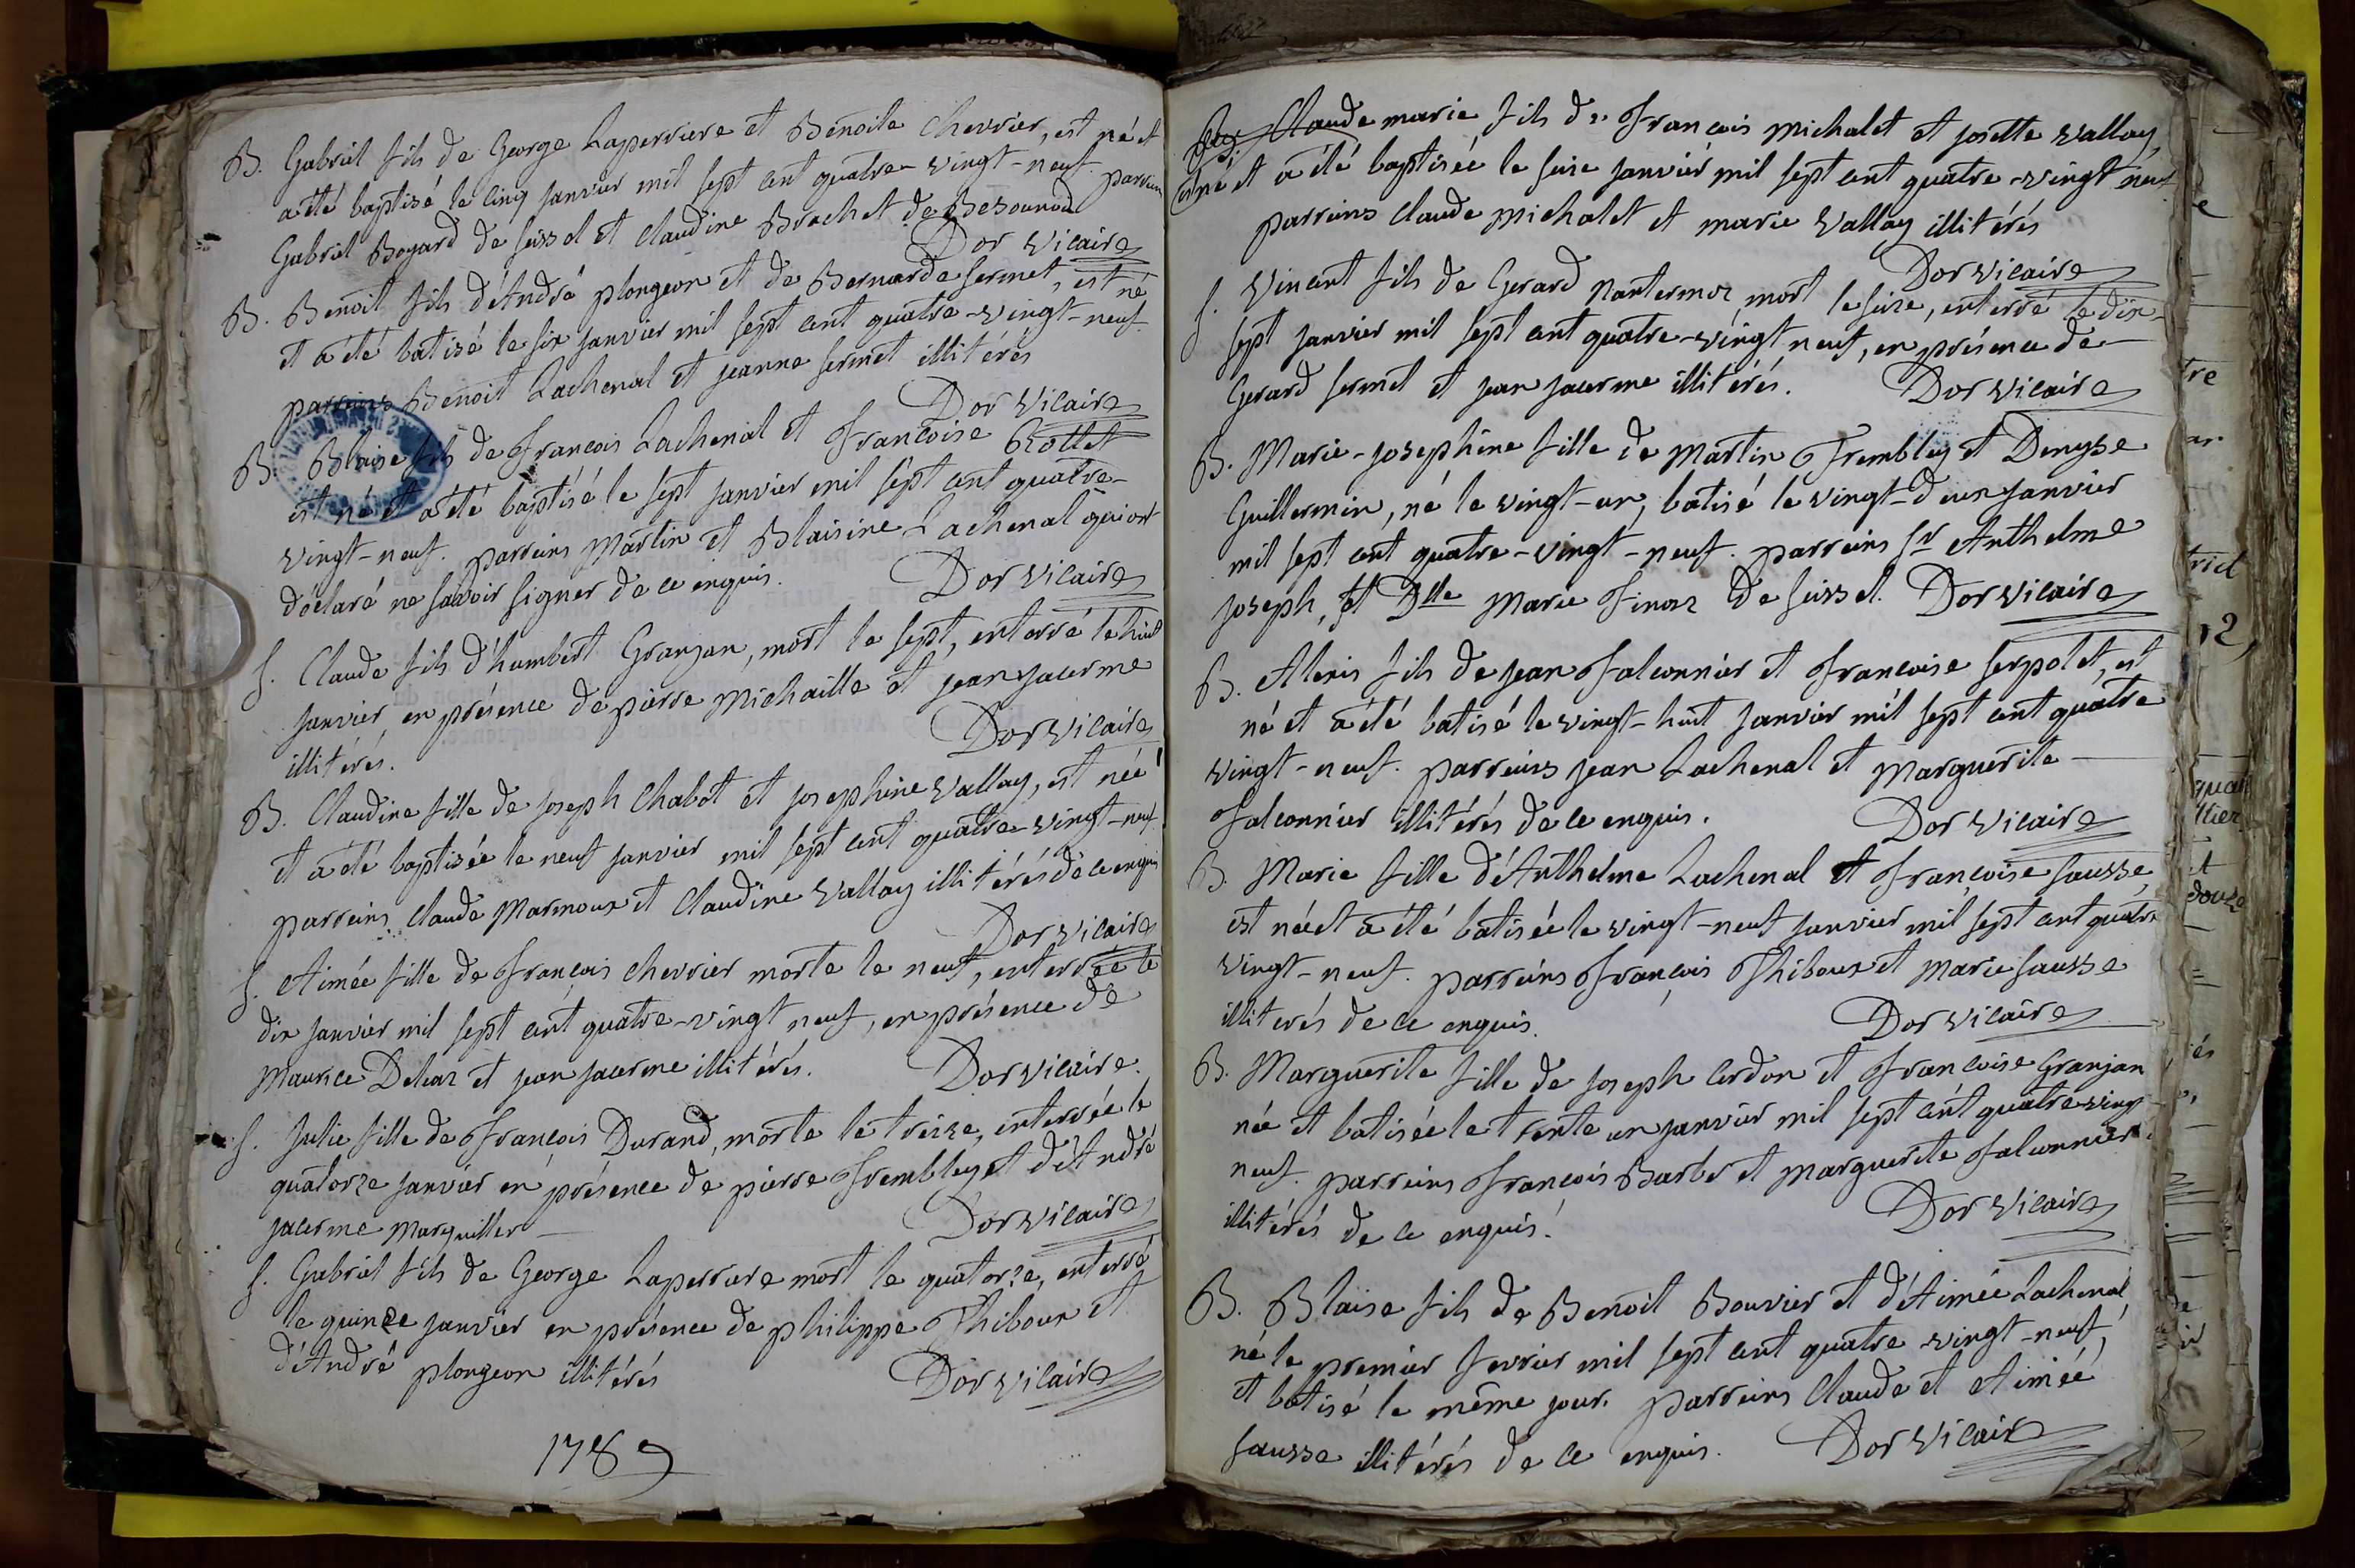 B. Gabriel fils de George Laperriere et Benoite Chevrier, est né et
a été baptisé le cinq janvier mil sept cent quatre-vingt-neuf. parrein
Gabriel Bogard de seissel et Claudine Brachet de Besonod
Dor vicaire
B. Benoit fils d'André plongeon et de Bernarde sermet, est né
et a été batisé le six janvier mil sept cent quatre-vingt-neuf
parreins Benoit Lachenal et jeanne sermet illitérés
Dor vicaire
B. Blaise fils de francois Lachenal et francoise Rollet
est né et a été baptisé le sept janvier mil sept cent quatre-
vingt-neuf. parreins Martin et Blaisine Lachenal qui ont
déclaré ne savoir signer de ce enquis.
Dor vicaire
S. Claude fils d'humbert Granjan, mort le sept, enterré le huit
janvier, en présence de pierre Michaille et jean jacerme
illitérés.
Dor vicaire
B. Claudine fille de joseph Chabot et josephine Vallay, est née
et a été baptisée le neuf janvier mil sept cent quatre-vingt-neuf.
parreins Claude Marmoux et Claudine Vallay illitérés de ce enquis
Dor vicaire
S. Aimée fille de francois Chevrier morte le neuf, enterrée le
dix janvier mil sept cent quatre-vingt neuf, en présence de
Maurice et jean jacerme illitérés.
Dor vicaire.
S. Julie fille de francois Durand, morte le treize, enterrée le
quatorze janvier en présence de pierre Trembley et d'André
jacerme Marguiller
Dor vicaire
S. Gabriel fils de George Laperriere mort le quatorze, enterré
le quinze janvier en présence de philippe Thiboux et
d'André plongeon illitérés
Dor vicaire
1789
Claude marie fils de francois Michalet et josette Vallay,
né et a été baptisée le seize janvier mil sept cent quatre-vingt neuf
parreins Claude Michalet et marie Vallay illitérés
Dor vicaire
S. Vincent fils de Gerard Nantermoz, mort le seize, enterré le dix-
sept janvier mil sept cent quatre-vingt neuf, en présence de
Gerard sermet et jean jacerme illitérés.
Dor vicaire
B. Marie-josephine fille de Martin Trembley et Denyse
Guillermin, né le vingt-un, batisé le vingt-deux janvier
mil sept cent quatre-vingt-neuf. parreins Sr Anthelme
joseph, et Dlle Marie Finoz de seissel. Dor vicaire
B. Alexis fils de jean falconnier et francoise serpolet, est
né et a été batisé le vingt-huit janvier mil sept cent quatre
vingt-neuf. parreins jean Lachenal et Marguerite
falconnier illitérés de ce enquis.
Dor vicaire
B. Marie fille d'Anthelme Lachenal et francoise sausse,
est née et a été batisée le vingt-neuf janvier mil sept cent quatre
vingt-neuf. parreins francois Thiboux et Marie sausse
illiterés de ce enquis.
Dor vicaire
B. Marguerite fille de joseph Cerdon et francoise Granjan
née et batisée le trente un janvier mil sept cent quatre-ving
neuf. parreins francois Barbe et Marguerite falconnier
illitérés de ce enquis.
Dor vicaire
B. Blaise fils de Benoit Bouvier et d'Aimée Lachenal
né le premier fevrier mil sept cent quatre vingt-neuf,
et batisé le même jour. parreins Claude et Aimée
sausse illitérés de ce enquis. Dor vicaire